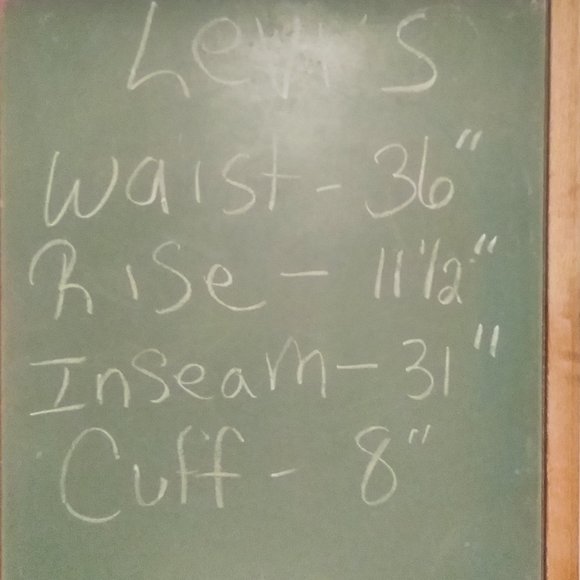 Levi's
Waist - 36"
Rise - 11 1/2"
Inseam - 31"
Cuff - 8"